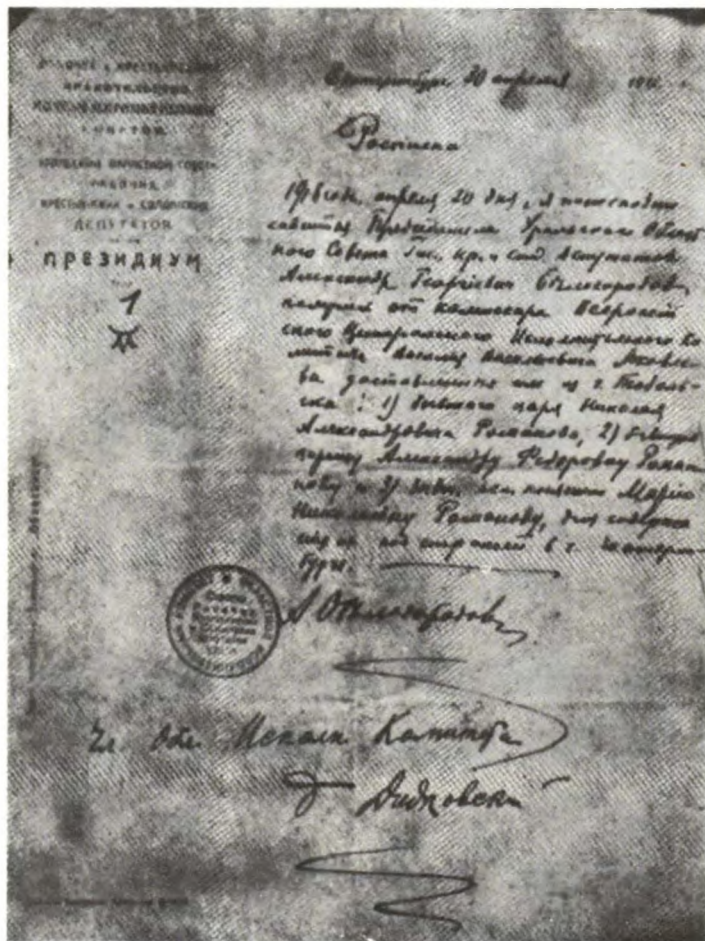 РАБОЧЕЕ и КРЕСТЬЯНСКОЕ
ПРАВИТЕЛЬСТВО
СОВЕТОВ
УРАЛЬСКИЙ ОБЛАСТНОЙ СОВЕТ
РАБОЧИХ,
КРЕСТЬЯНСКИХ и СОЛДАТСКИХ
ДЕПУТАТОВ
ПРЕЗИДИУМ
1
Екатеринбург 30 апреля 191
Расписка
1918 года, апреля 30 дня, я нижеподпи
савшийся Председатель Уральского Област
ного Совета Раб., кр. и солд. депутатов
Александр Георгиевич Белобородов
получил от комиссара Всероссий
ского Центрального Исполнительного Ко
митета Василия Васильевича Яковле-
ва доставленных им из г. Тоболь-
ска: 1) бывшего царя Николая
Александровича Романова, 2) бывшую
царицу Александру Федоровну Рома
нову и 3) вел. княжну Марию
Николаевну Романову, для содержа
ния их под стражей в г. Екатерин
бурге.
А Белобородов
Чл Обл. Исполн Комитета
Дидковский